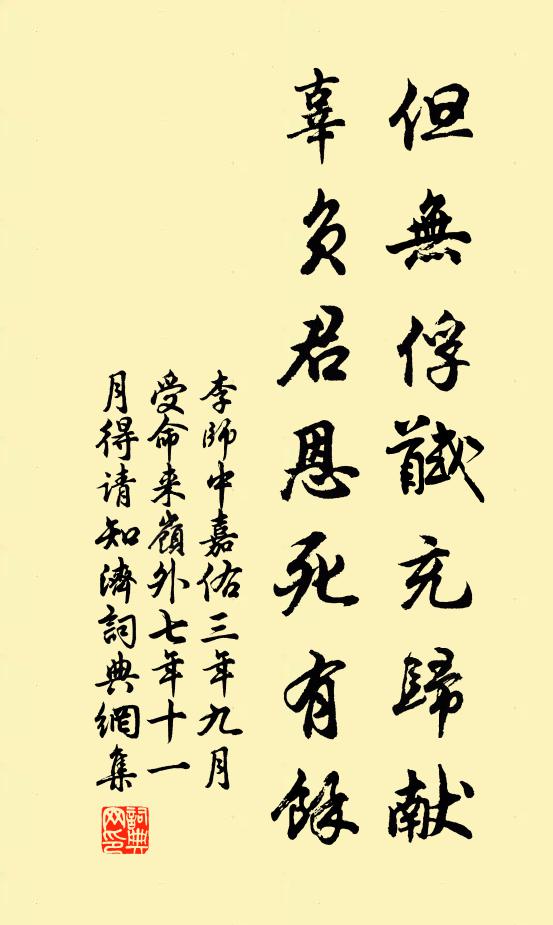 但無俘馘充歸献
辜負君恩死有餘
李師中嘉佑三年九月
受命来嶺外七年十一
月得请知濟詞典網集
詞典網印